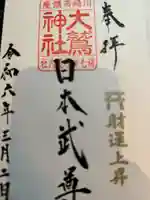 奉拝
財運上昇
大鷲神社
日本武尊
令和六年三月二日